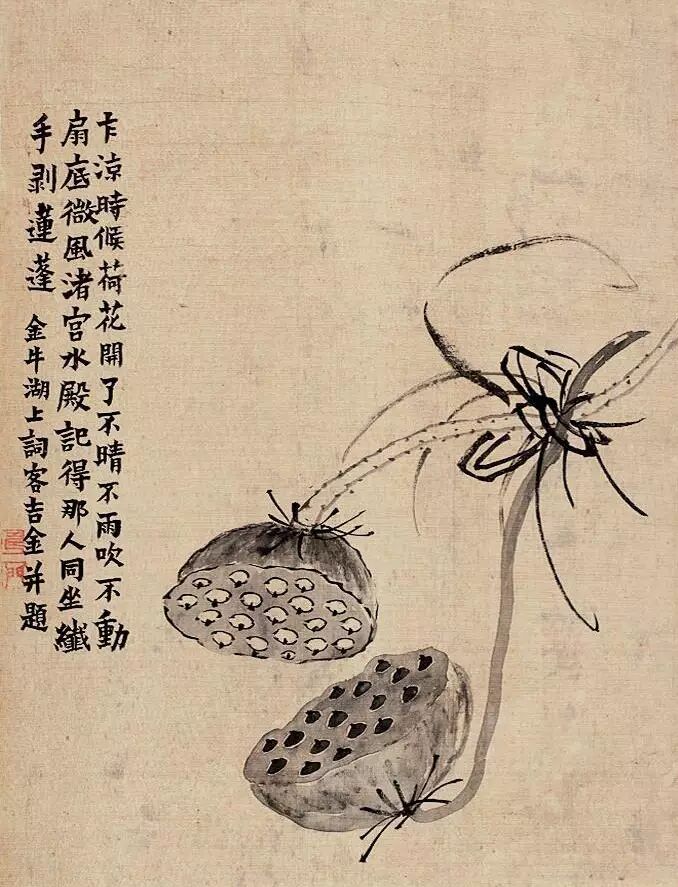 乍涼時候荷花開了不晴不雨吹不動
扇底微風渚宮水殿記得那人同坐纖
手剥蓮蓬 金牛湖上詞客吉金并題